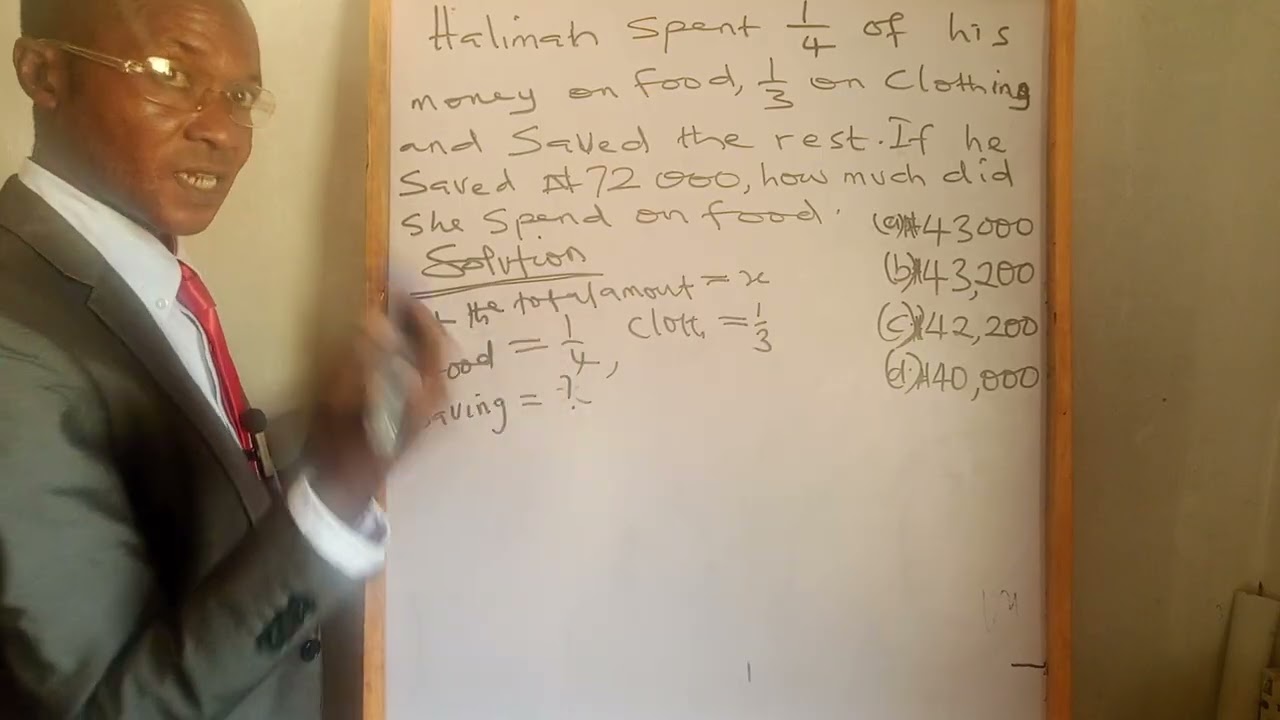 Halimah Spent 1/4 of his
money on food, 1/3 on Clothing
and Saved the rest. If he
Saved ₦72 000, how much did
she spend on food.
(a) ₦43000
(b) ₦43,200
(c) ₦42,200
(d) ₦40,000
Solution
the total amout = x
= 1/4, cloth = 1/3
= ?